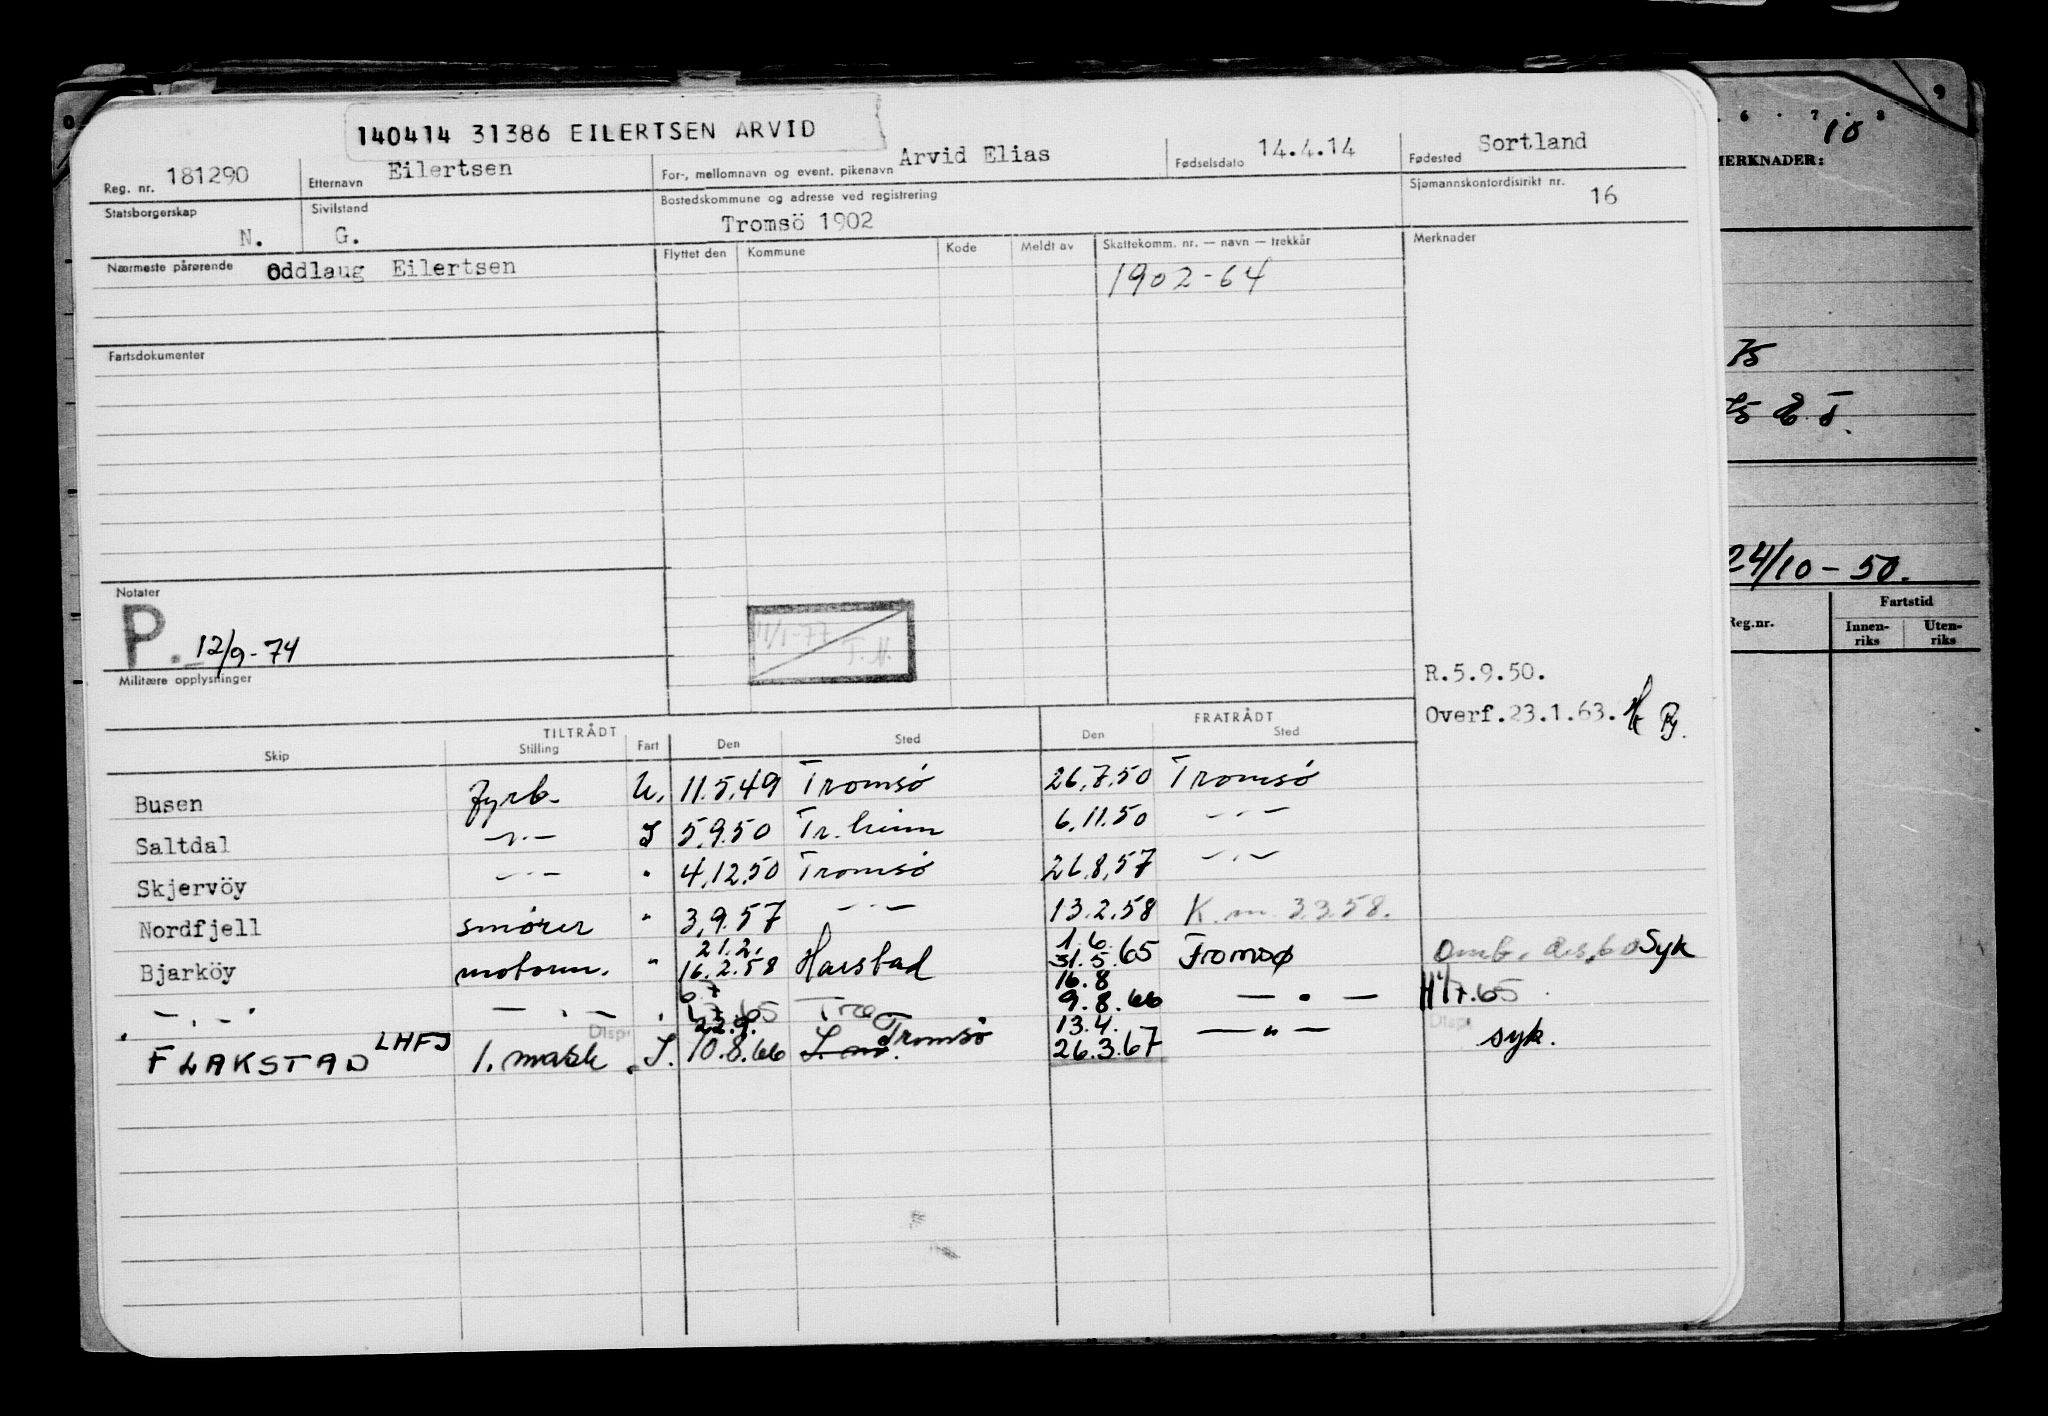 140414 31386 EILERTSEN ARVID
Reg. nr. 181290 Etternavn Eilertsen For-, mellomnavn og event. pikenavn Arvid Elias Fødselsdato 14.4.14 Fødested Sortland
Statsborgerskap N. Sivilstand G. Bostedskommune og adresse ved registrering Tromsö 1902 Sjømannskontordistrikt nr. 16
Nærmeste pårørende Oddlaug Eilertsen Flyttet den Kommune Kode Meldt av Skattekomm. nr. — navn — trekkår Merknader
1902-64
Fartsdokumenter
Notater
P. 12/9-74
11/1-77 T.H.
Militære opplysninger
R.5.9.50.
Overf.23.1.63.
TILTRÅDT FRATRÅDT
Skip Stilling Fart Den Sted Den Sted
Busen fyrb. U. 11.5.49 Tromsö 26.7.50 Tromsö
Saltdal —"— I 5.9.50 Tr.heim 6.11.50 —"—
Skjervöy —"— " 4.12.50 Tromsö 26.8.57 —"—
Nordfjell smörer " 3.9.57 —"— 13.2.58 K.m. 3.3.58.
21.2. 1.6.
Bjarköy motorm. " 16.2.58 Harstad 31.5.65 Tromsø Syk
16.8
—"— —"— 9.8.66 —"— 7.65
22.9. 13.4.
FLAKSTAD LHFJ 1. mask Disp. I. 10.8.66 Tromsö 26.3.67 —"— Disp. syk.
6 7 8 9
10
MERKNADER:
75
75 E.T.
24/10-50.
Reg.nr. Fartstid
Innen-riks Uten-riks